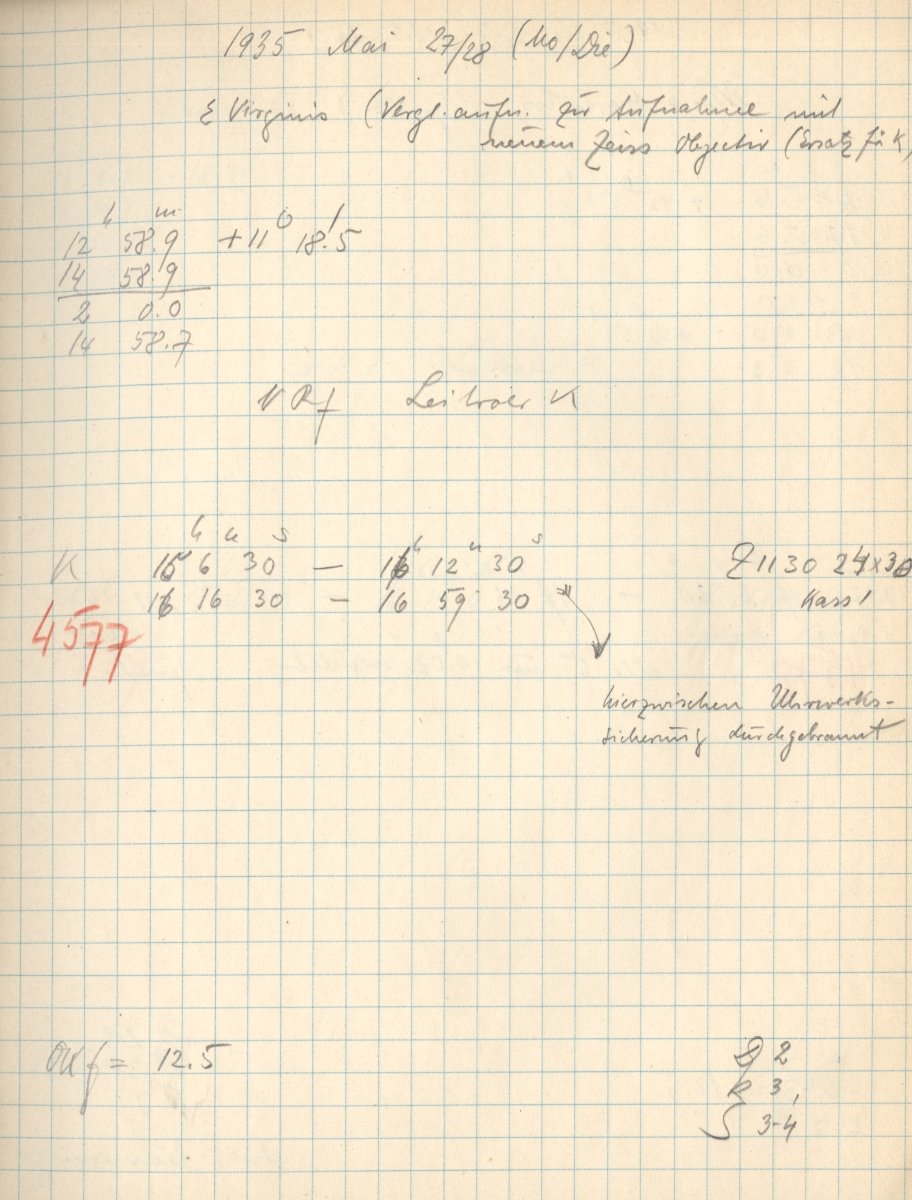 1935 Mai 27/28 (Mo/Die)
ε Virginis (Vergl. aufn. zur Aufnahme mit
neuem Zeiss Objectiv (Ersatz für K)
h m o '
12 58.9 +11 18.5
14 58.9
2 0.0
14 58.7
Leitrohr K
h m s h m s
K 16 6 30 — 16 12 30 Z 1130 24x30
16 16 30 — 16 59 30 Kass 1
4577
hierzwischen Uhrwerks-
sicherung durchgebrannt
Okf = 12.5
2
R 3
S 3-4